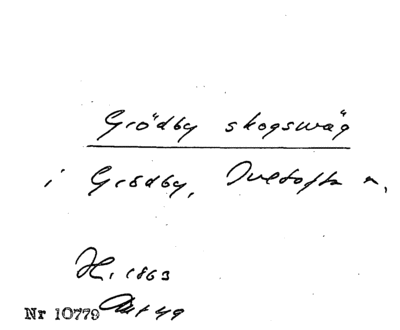 Grödby skogswäg
i Grödby, Ivetofta s.
H. 1863
Nr 10779 Akt 49